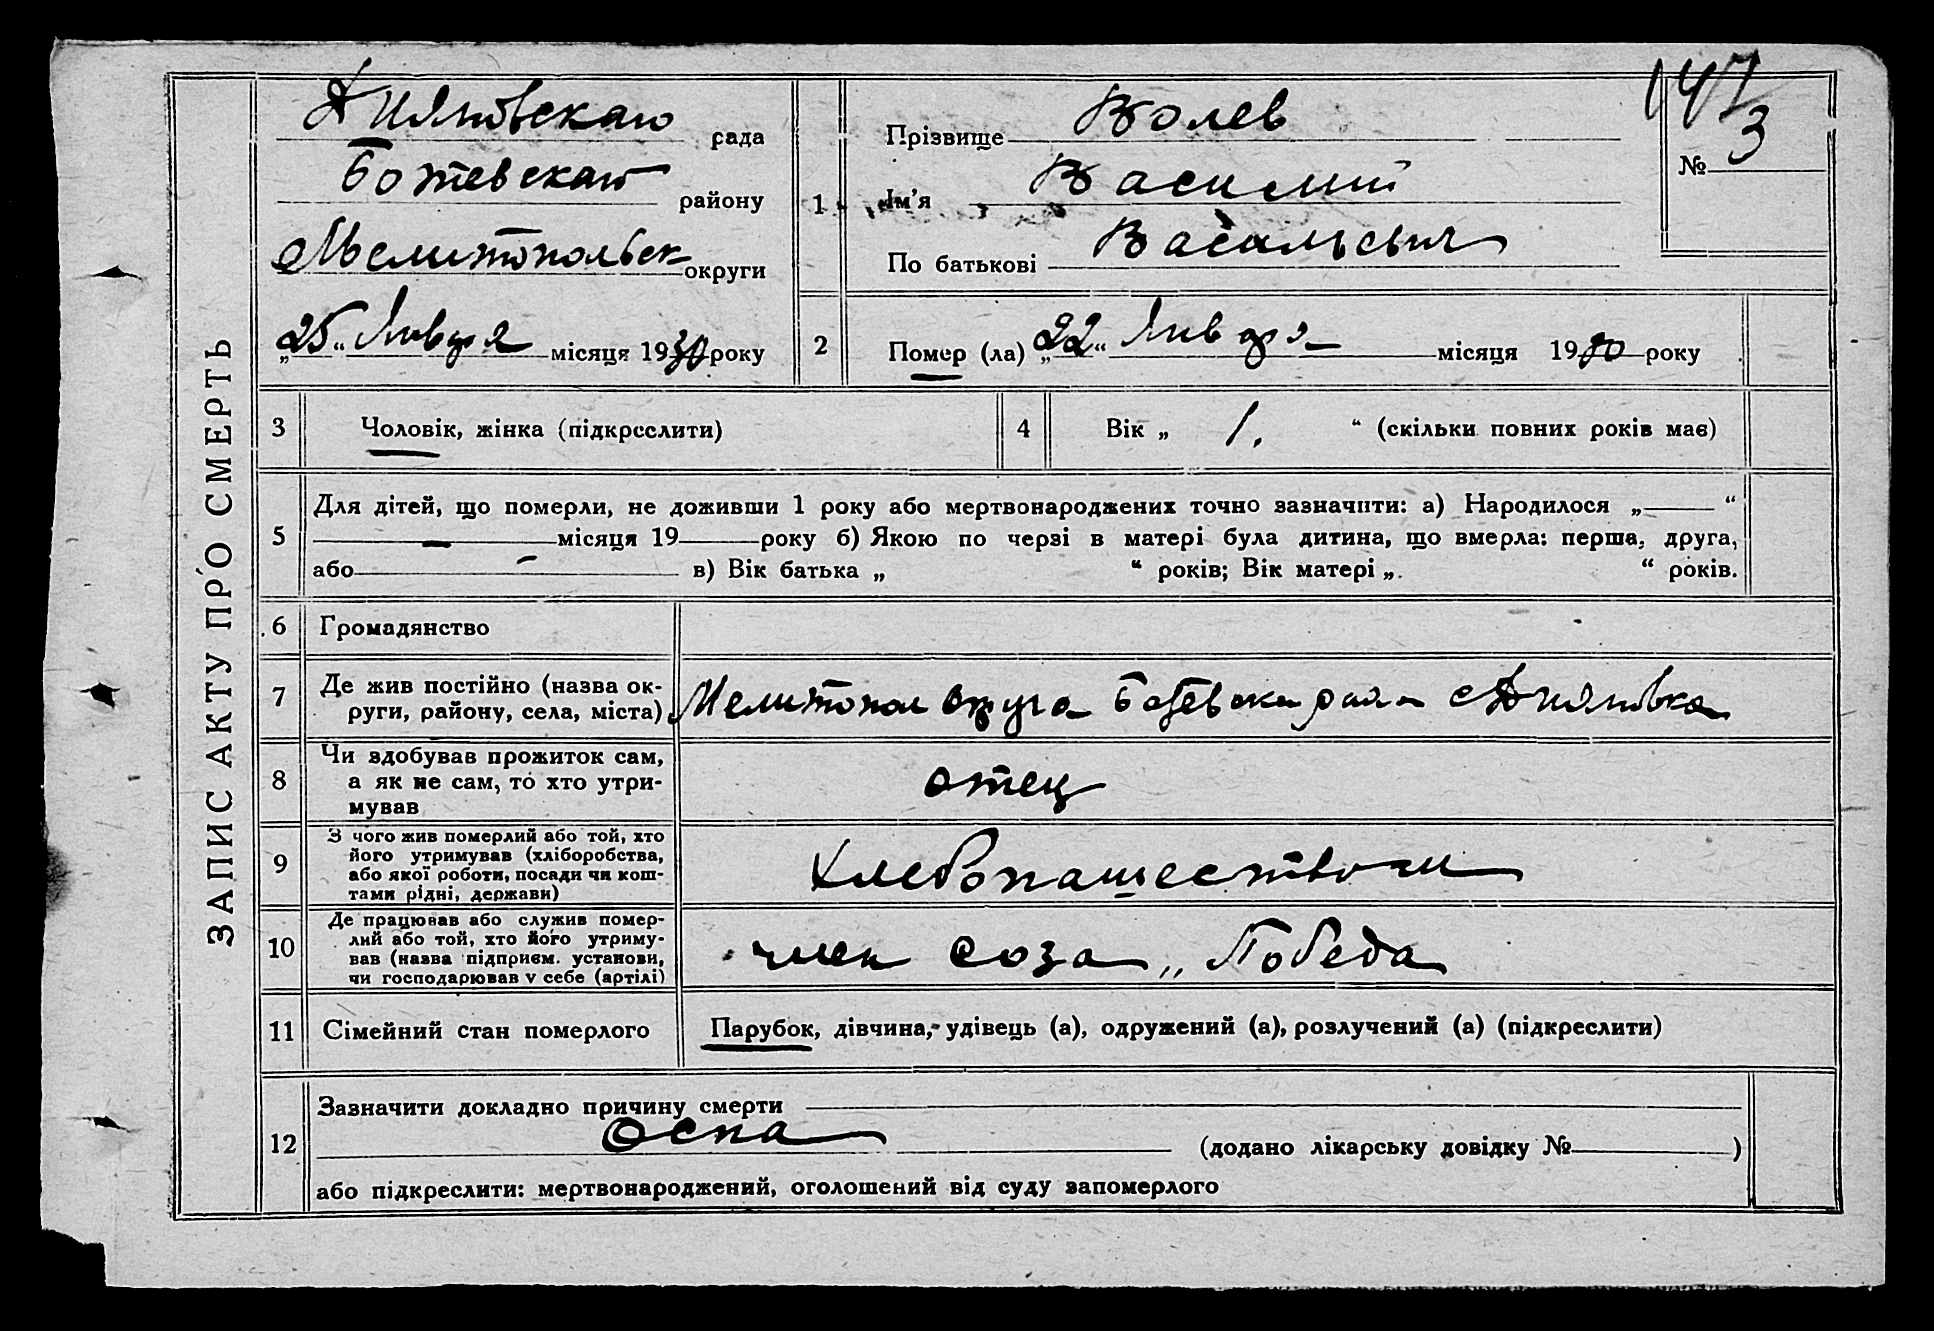 ЗАПИС АКТУ ПРО СМЕРТЬ
147
№ 3
рада
Ботевскаго району
Мелитопольск округи
„25“ Января місяця 1930 року
1
Прізвище Волев
Ім'я Василий
По батькові Васильевич
2
Помер (ла) „22“ Января місяця 1930 року
3 Чоловік, жінка (підкреслити)
4 Вік „ 1. “ (скільки повних років має)
5
Для дітей, що померли, не доживши 1 року або мертвонароджених точно зазначити: а) Народилося „ “
місяця 19 року б) Якою по черзі в матері була дитина, що вмерла: перша, друга,
або в) Вік батька „ “ років; Вік матері „ “ років.
6 Громадянство
7 Де жив постійно (назва ок-
руги, району, села, міста)
Мелитопол округа
8 Чи здобував прожиток сам,
а як не сам, то хто утри-
мував
отец
9 З чого жив померлий або той, хто
його утримував (хліборобства,
або якої роботи, посади чи кош-
тами рідні, держави)
Хлебопашеством
10 Де працював або служив помер-
лий або той, хто його утриму-
вав (назва підприєм. установи,
чи господарював у себе (артілі)
член соза „Победа
11 Сімейний стан померлого
Парубок, дівчина, удівець (а), одружений (а), розлучений (а) (підкреслити)
12 Зазначити докладно причину смерти
Оспа (додано лікарську довідку № )
або підкреслити: мертвонароджений, оголошений від суду запомерлого